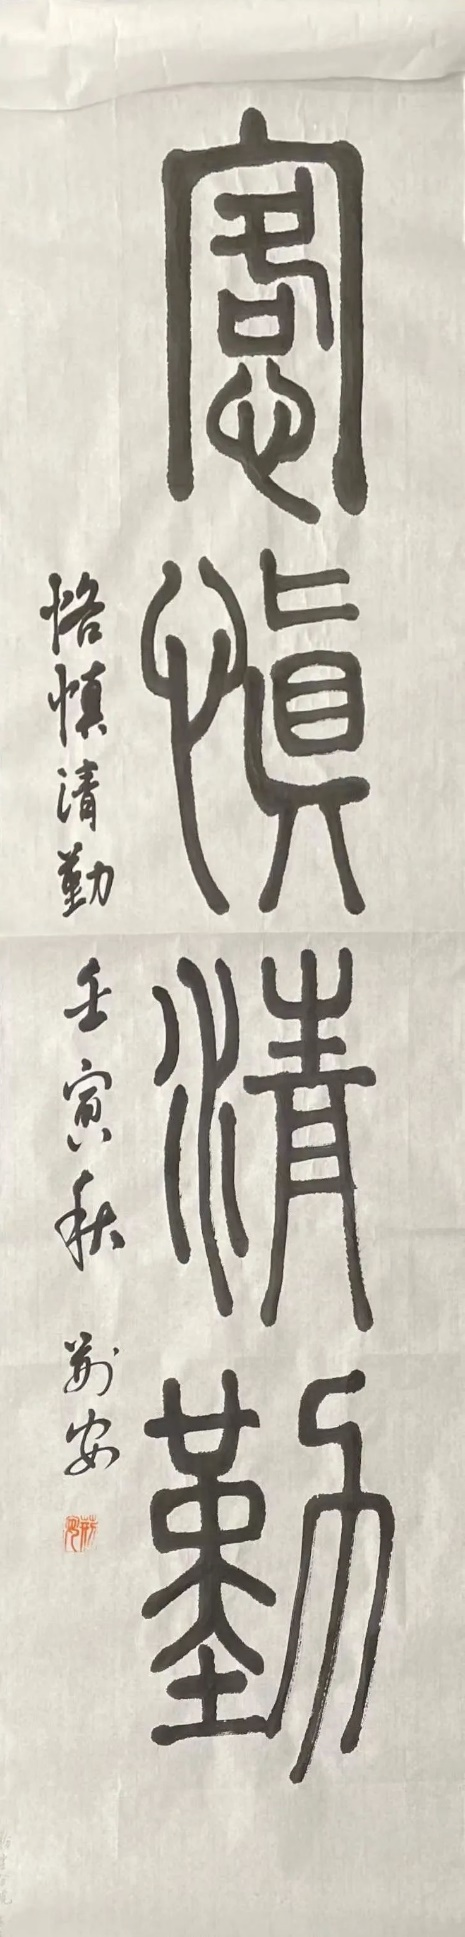 愙慎清勤
恪慎清勤 壬寅秋 荆安